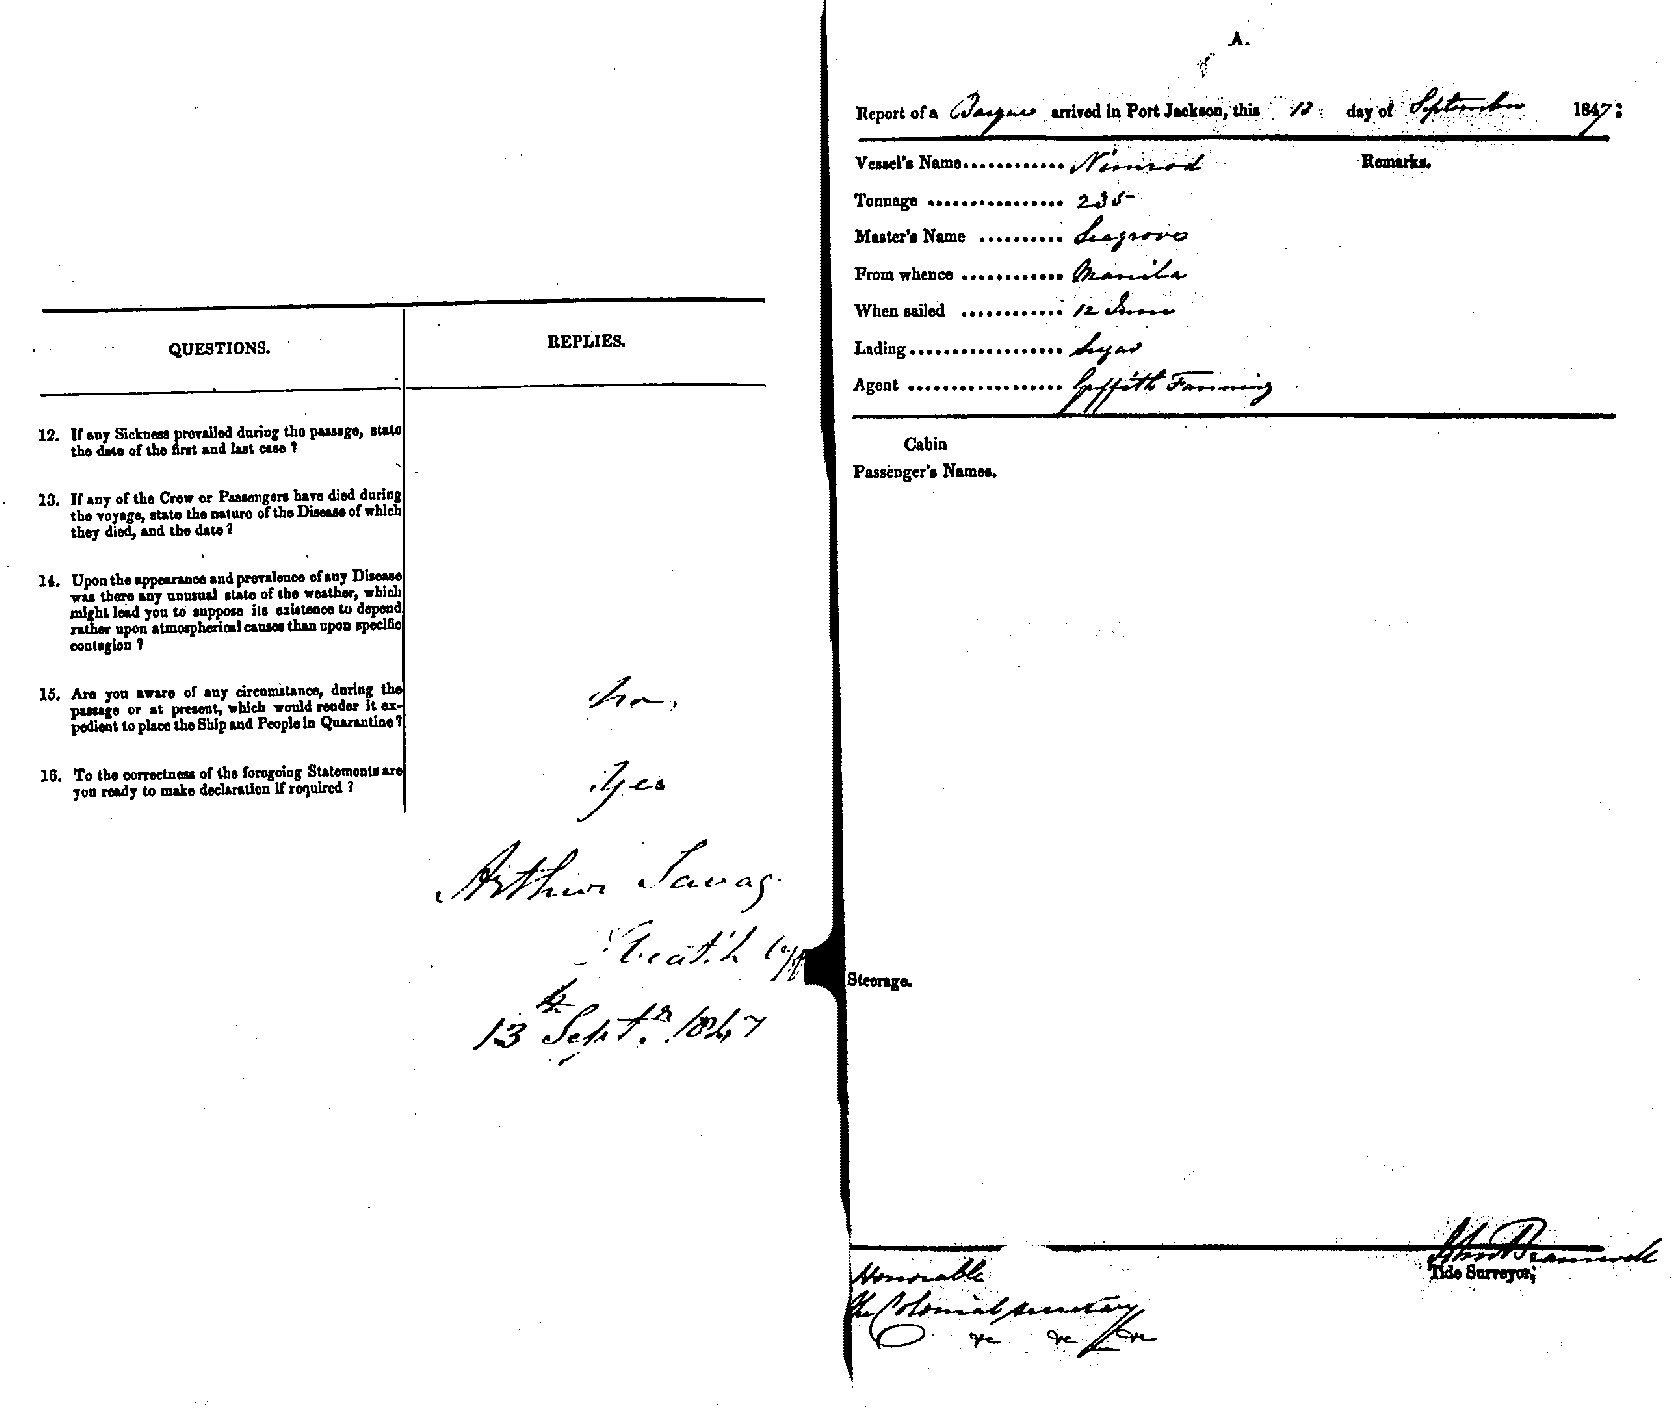 QUESTIONS.
REPLIES.
12. If any Sickness prevailed during the passage, state
the date of the first and last case ?
13. If any of the Crew or Passengers have died during
the voyage, state the nature of the Disease of which
they died, and the date ?
14. Upon the appearance and prevalence of any Disease
was there any unusual state of the weather, which
might lead you to suppose its existence to depend
rather upon atmospherical causes than upon specific
contagion ?
15. Are you aware of any circumstance, during the
passage or at present, which would render it ex-
pedient to place the Ship and People in Quarantine ?
No.
16. To the correctness of the foregoing Statements are
you ready to make declaration if required ?
Yes
Arthur Savag
Health Off
13th Septr. 1847
A.
Report of a Barque arrived in Port Jackson, this 13 day of September 1847:
Vessel's Name............ Nimrod
Remarks.
Tonnage ................ 235
Master's Name .......... Seagrove
From whence ............ Manila
When sailed ............ 12 June
Lading.................. Sugar
Agent .................. Griffith Fanning
Cabin
Passenger's Names.
Steerage.
Tide Surveyor,
Honorable
The Colonial Secretary
&c &c &c